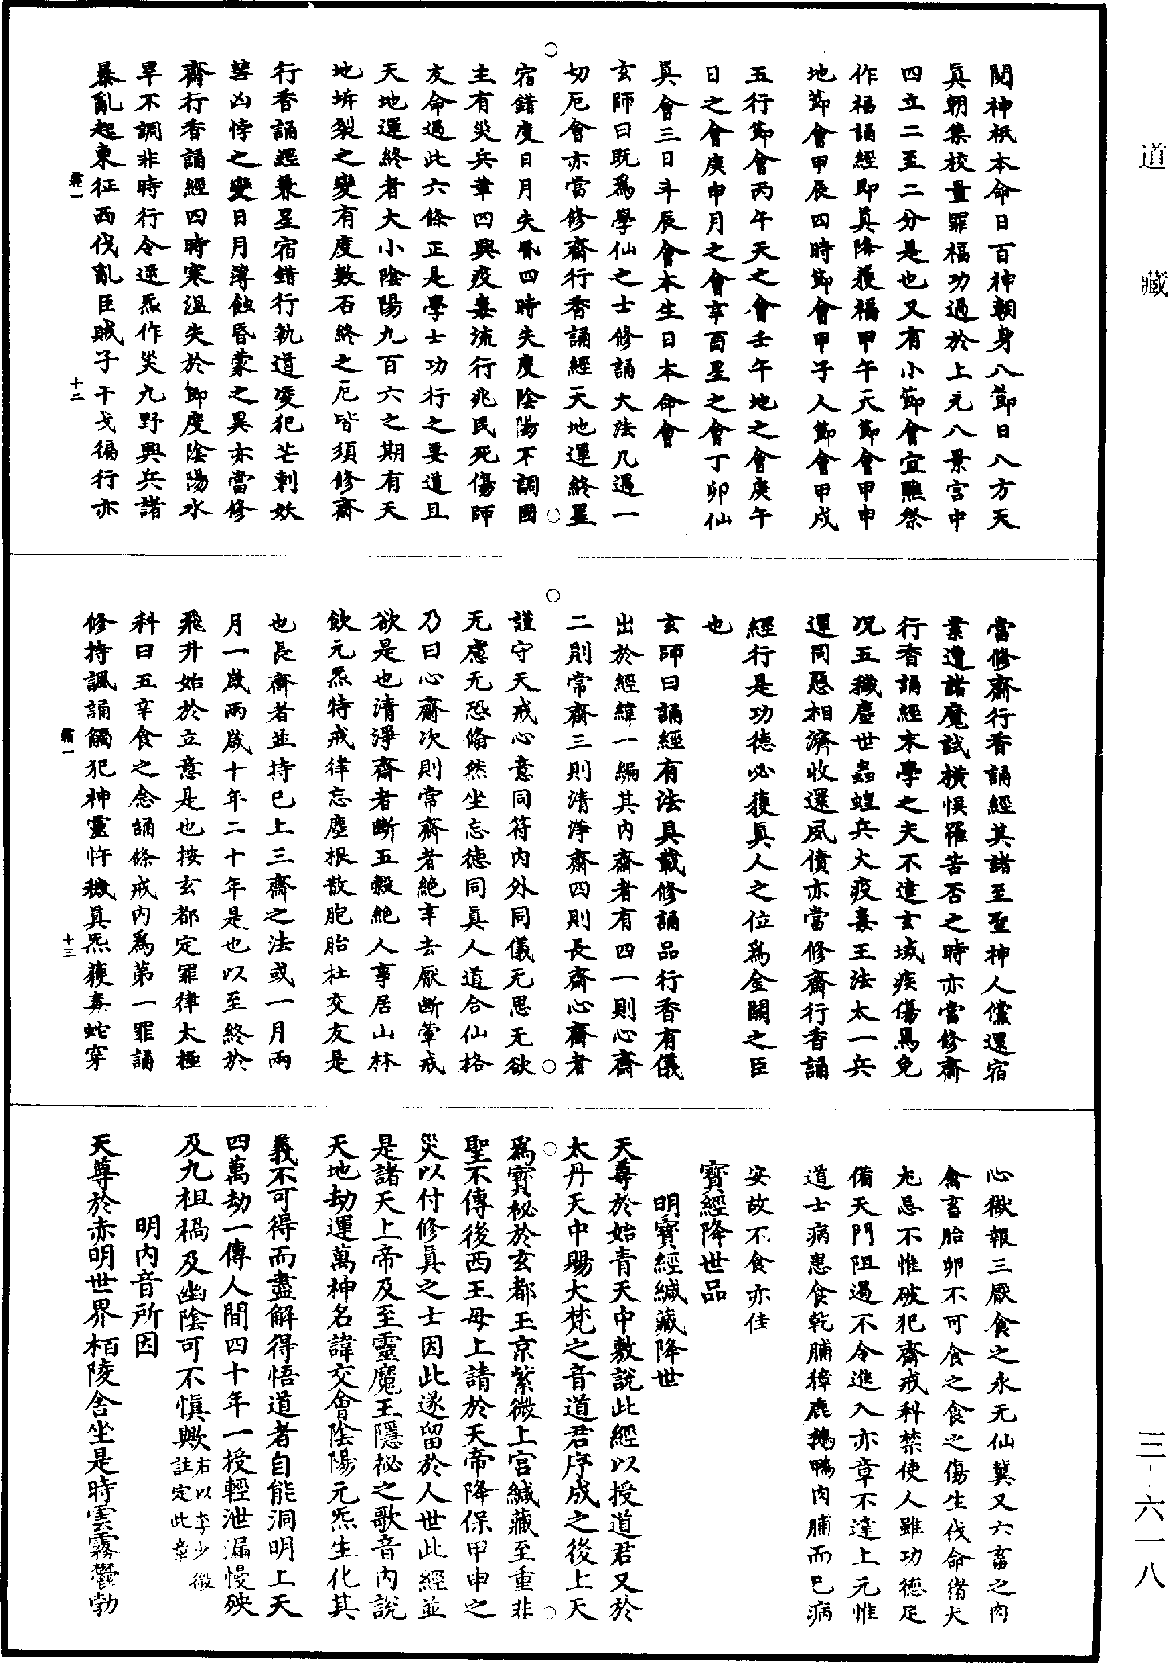 道藏
三-六一八
関神祇本命日百神朝身八節日八方天
眞朝集校量罪福功過於上元八景宫中
四立二至二分是也又有小節會宜醮祭
作福誦經即眞降獲福甲午天節會甲申
地節會甲辰四時節會甲子人節會甲戌
五行節會丙午天之會壬午地之會庚午
日之會庚申月之會辛酉星之會丁卯仙
眞會三日斗辰會本生日本命會
玄師曰既爲學仙之士修誦大法凡遇一
切厄會亦當修齋行香誦經天地運終星
宿錯度日月失昏四時失度陰陽不調國
主有災兵革四興疫毒流行兆民死傷師
友命過此六條正是學士功行之要道且
天地運終者大小陰陽九百六之期有天
地坼裂之變有度數否終之厄皆須修齋
行香誦經兼星宿錯行軌道凌犯芒刺妖
彗凶悖之變日月薄蝕昏蒙之異亦當修
齋行香誦經四時寒温失於節度陰陽水
旱不調非時行令逆炁作災九野興兵諸
暴亂起東征西伐亂臣賊子干戈徧行亦
霜一 十二
當修齋行香誦經其諸至聖神人償還宿
業遭諸魔試橫悮罹苦否之時亦當修齋
行香誦經末學之夫不達玄域疾傷馬兔
况五穢塵世蟲蝗兵火疫毒王法太一兵
運同惡相濟收還夙債亦當修齋行香誦
經行是功德必獲眞人之位爲金闕之臣
也
玄師曰誦經有法具載修誦品行香有儀
出於經緯一編其内齋者有四一則心齋
二則常齋三則清淨齋四則長齋心齋者
謹守天戒心意同符内外同儀无思无欲
无慮无恐翛然坐忘德同眞人道合仙格
乃曰心齋次則常齋者絶辛去厭斷葷戒
欲是也清淨齋者斷五穀絶人事居山林
飲元炁特戒律忘塵根散胞胎杜交友是
也長齋者並持已上三齋之法或一月兩
月一歲兩歲十年二十年是也以至終於
飛升始於立意是也按玄都定罪律太極
科曰五辛食之念誦條戒内爲第一罪誦
修持諷誦觸犯神靈忤穢眞炁獲毒蛇穿
霜一 十三
心獄報三厭食之永无仙冀又六畜之肉
禽畜胎卵不可食之食之傷生伐命猪犬
尤忌不惟破犯齋戒科禁使人雖功德足
備天門阻遏不令進入亦章不達上元惟
道士病患食乾脯獐鹿鵝鴨肉脯而已病
安故不食亦佳
寳經降世品
明寳經緘藏降世
天尊於始青天中敷説此經以授道君又於
太丹天中賜大梵之音道君序成之後上天
爲寳秘於玄都玉京紫微上宫緘藏至重非
聖不傳後西王母上請於天帝降保甲申之
災以付修眞之士因此遂留於人世此經並
是諸天上帝及至靈魔王隱祕之歌音内説
天地劫運萬神名諱交會陰陽元炁生化其
義不可得而盡解得悟道者自能洞明上天
四萬劫一傳人間四十年一授輕泄漏慢殃
及九祖禍及幽陰可不愼歟右以李少微註定此章
明内音所因
天尊於赤明世界栢陵舍坐是時雲霧鬱勃